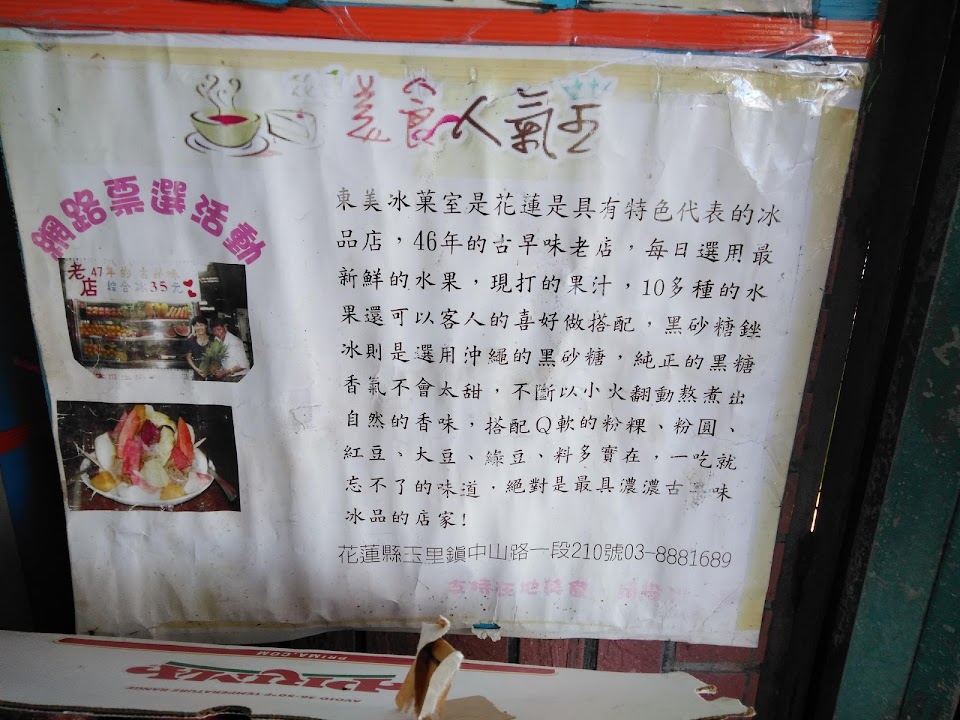 美食人氣王
網路票選活動
老店
47年的古早味
綜合冰35元
東美冰菓室是花蓮是具有特色代表的冰
品店，46年的古早味老店，每日選用最
新鮮的水果，現打的果汁，10多種的水
果還可以客人的喜好做搭配，黑砂糖銼
冰則是選用沖繩的黑砂糖，純正的黑糖
香氣不會太甜，不斷以小火翻動熬煮出
自然的香味，搭配Q軟的粉粿、粉圓、
紅豆、大豆、綠豆、料多實在，一吃就
忘不了的味道，絕對是最具濃濃古早味
冰品的店家!
花蓮縣玉里鎮中山路一段210號03-8881689
PRIMA.COM